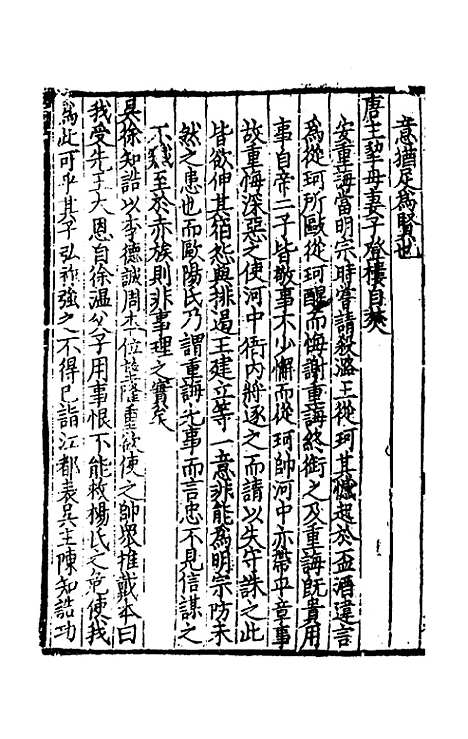 意猶足為賢也
唐主挈母妻子登樓自焚
安重誨當明宗時嘗請殺潞王從珂其憾起於盃酒違言
為從珂所敺從珂醒而悔謝重誨終銜之及重誨既貴用
事自帝二子皆敬事不少懈而從珂帥河中亦帶平章事
故重誨深惡之使河中衙内將逐之而請以失守誅之此
皆欲伸其宿怨與排過王建立等一意非能為明宗防未
然之患也而歐陽氏乃謂重誨先事而言忠不見信謀之
不臧至於赤族則非事理之實矣
吳徐知誥以李德誠周本位望隆重欲使之帥眾推戴本曰
我受先王大恩自徐温父子用事恨不能救楊氏之危使我
為此可乎其子弘祚強之不得已詣江都表吳主陳知誥功